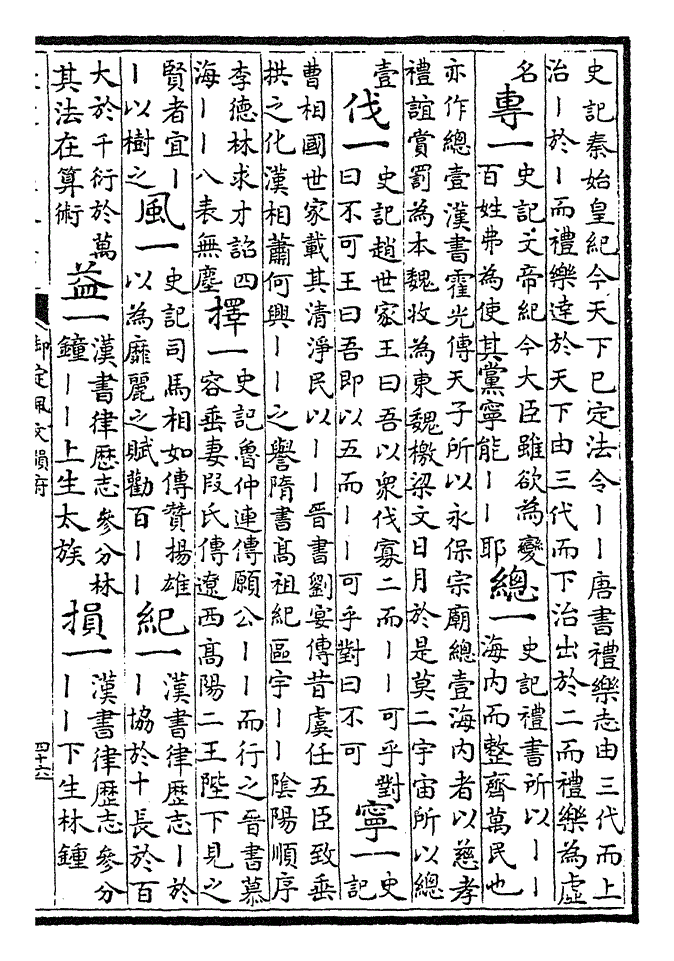 史記秦始皇紀今天下已定法令丨丨唐書禮樂志由三代而上
治丨於丨而禮樂達於天下由三代而下治出於二而禮樂為虛
名
專一
史記文帝紀今大臣雖欲為變
百姓弗為使其黨寧能丨丨耶
總一
史記禮書所以丨丨
海內而整齊萬民也
亦作總壹漢書霍光傳天子所以永保宗廟總壹海內者以慈孝
禮誼賞罰為本魏收為東魏檄梁文日月於是莫二宇宙所以總
壹
伐一
史記趙世家王曰吾以衆伐寡二而丨丨可乎對
曰不可王曰吾即以五而丨丨可乎對曰不可
寧一
史
記
曹相國世家載其清淨民以丨丨晉書劉宴傳昔虞任五臣致垂
拱之化漢相蕭何興丨丨之譽隋書高祖紀區宇丨丨陰陽順序
李德林求才詔四
海丨丨八表無塵
擇一
史記魯仲連傳願公丨丨而行之晉書慕
容垂妻段氏傳遼西高陽二王陛下見之
賢者宜丨
丨以樹之
風一
史記司馬相如傳贊揚雄
以為靡麗之賦勸百丨丨
紀一
漢書律歷志丨於
丨協於十長於百
大於千衍於萬
其法在算術
益一
漢書律歷志參分林
鐘丨丨上生太族
損一
漢書律歷志參分
丨丨下生林鐘
御定佩文韻府
四十六